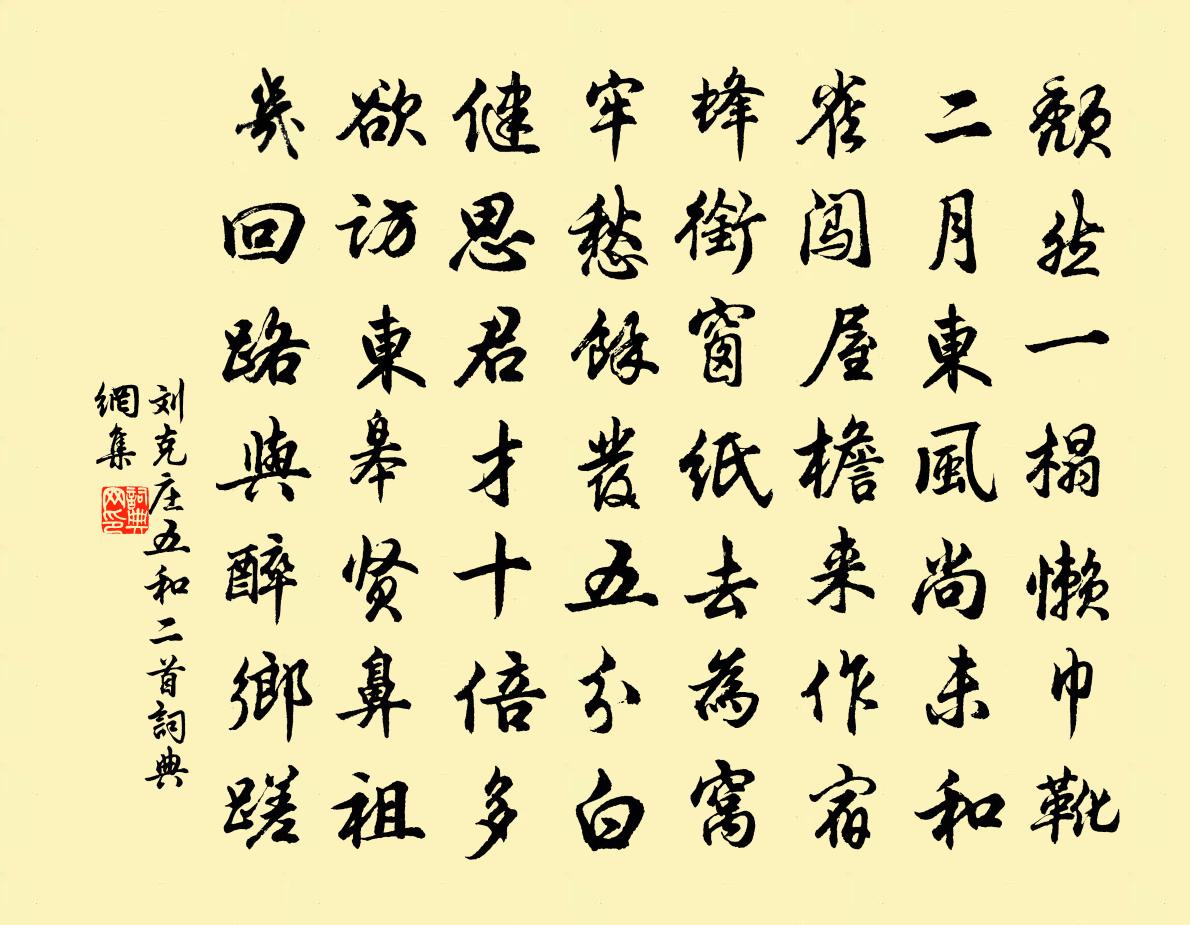 頹然一榻懶巾靴
二月東風尚未和
雀闯屋檐来作宿
蜂銜窗紙去為窩
牢愁餘發五分白
健思君才十倍多
欲访東皋贤鼻祖
幾回路與醉鄉蹉
刘克庄五和二首詞典
網集
詞典网印